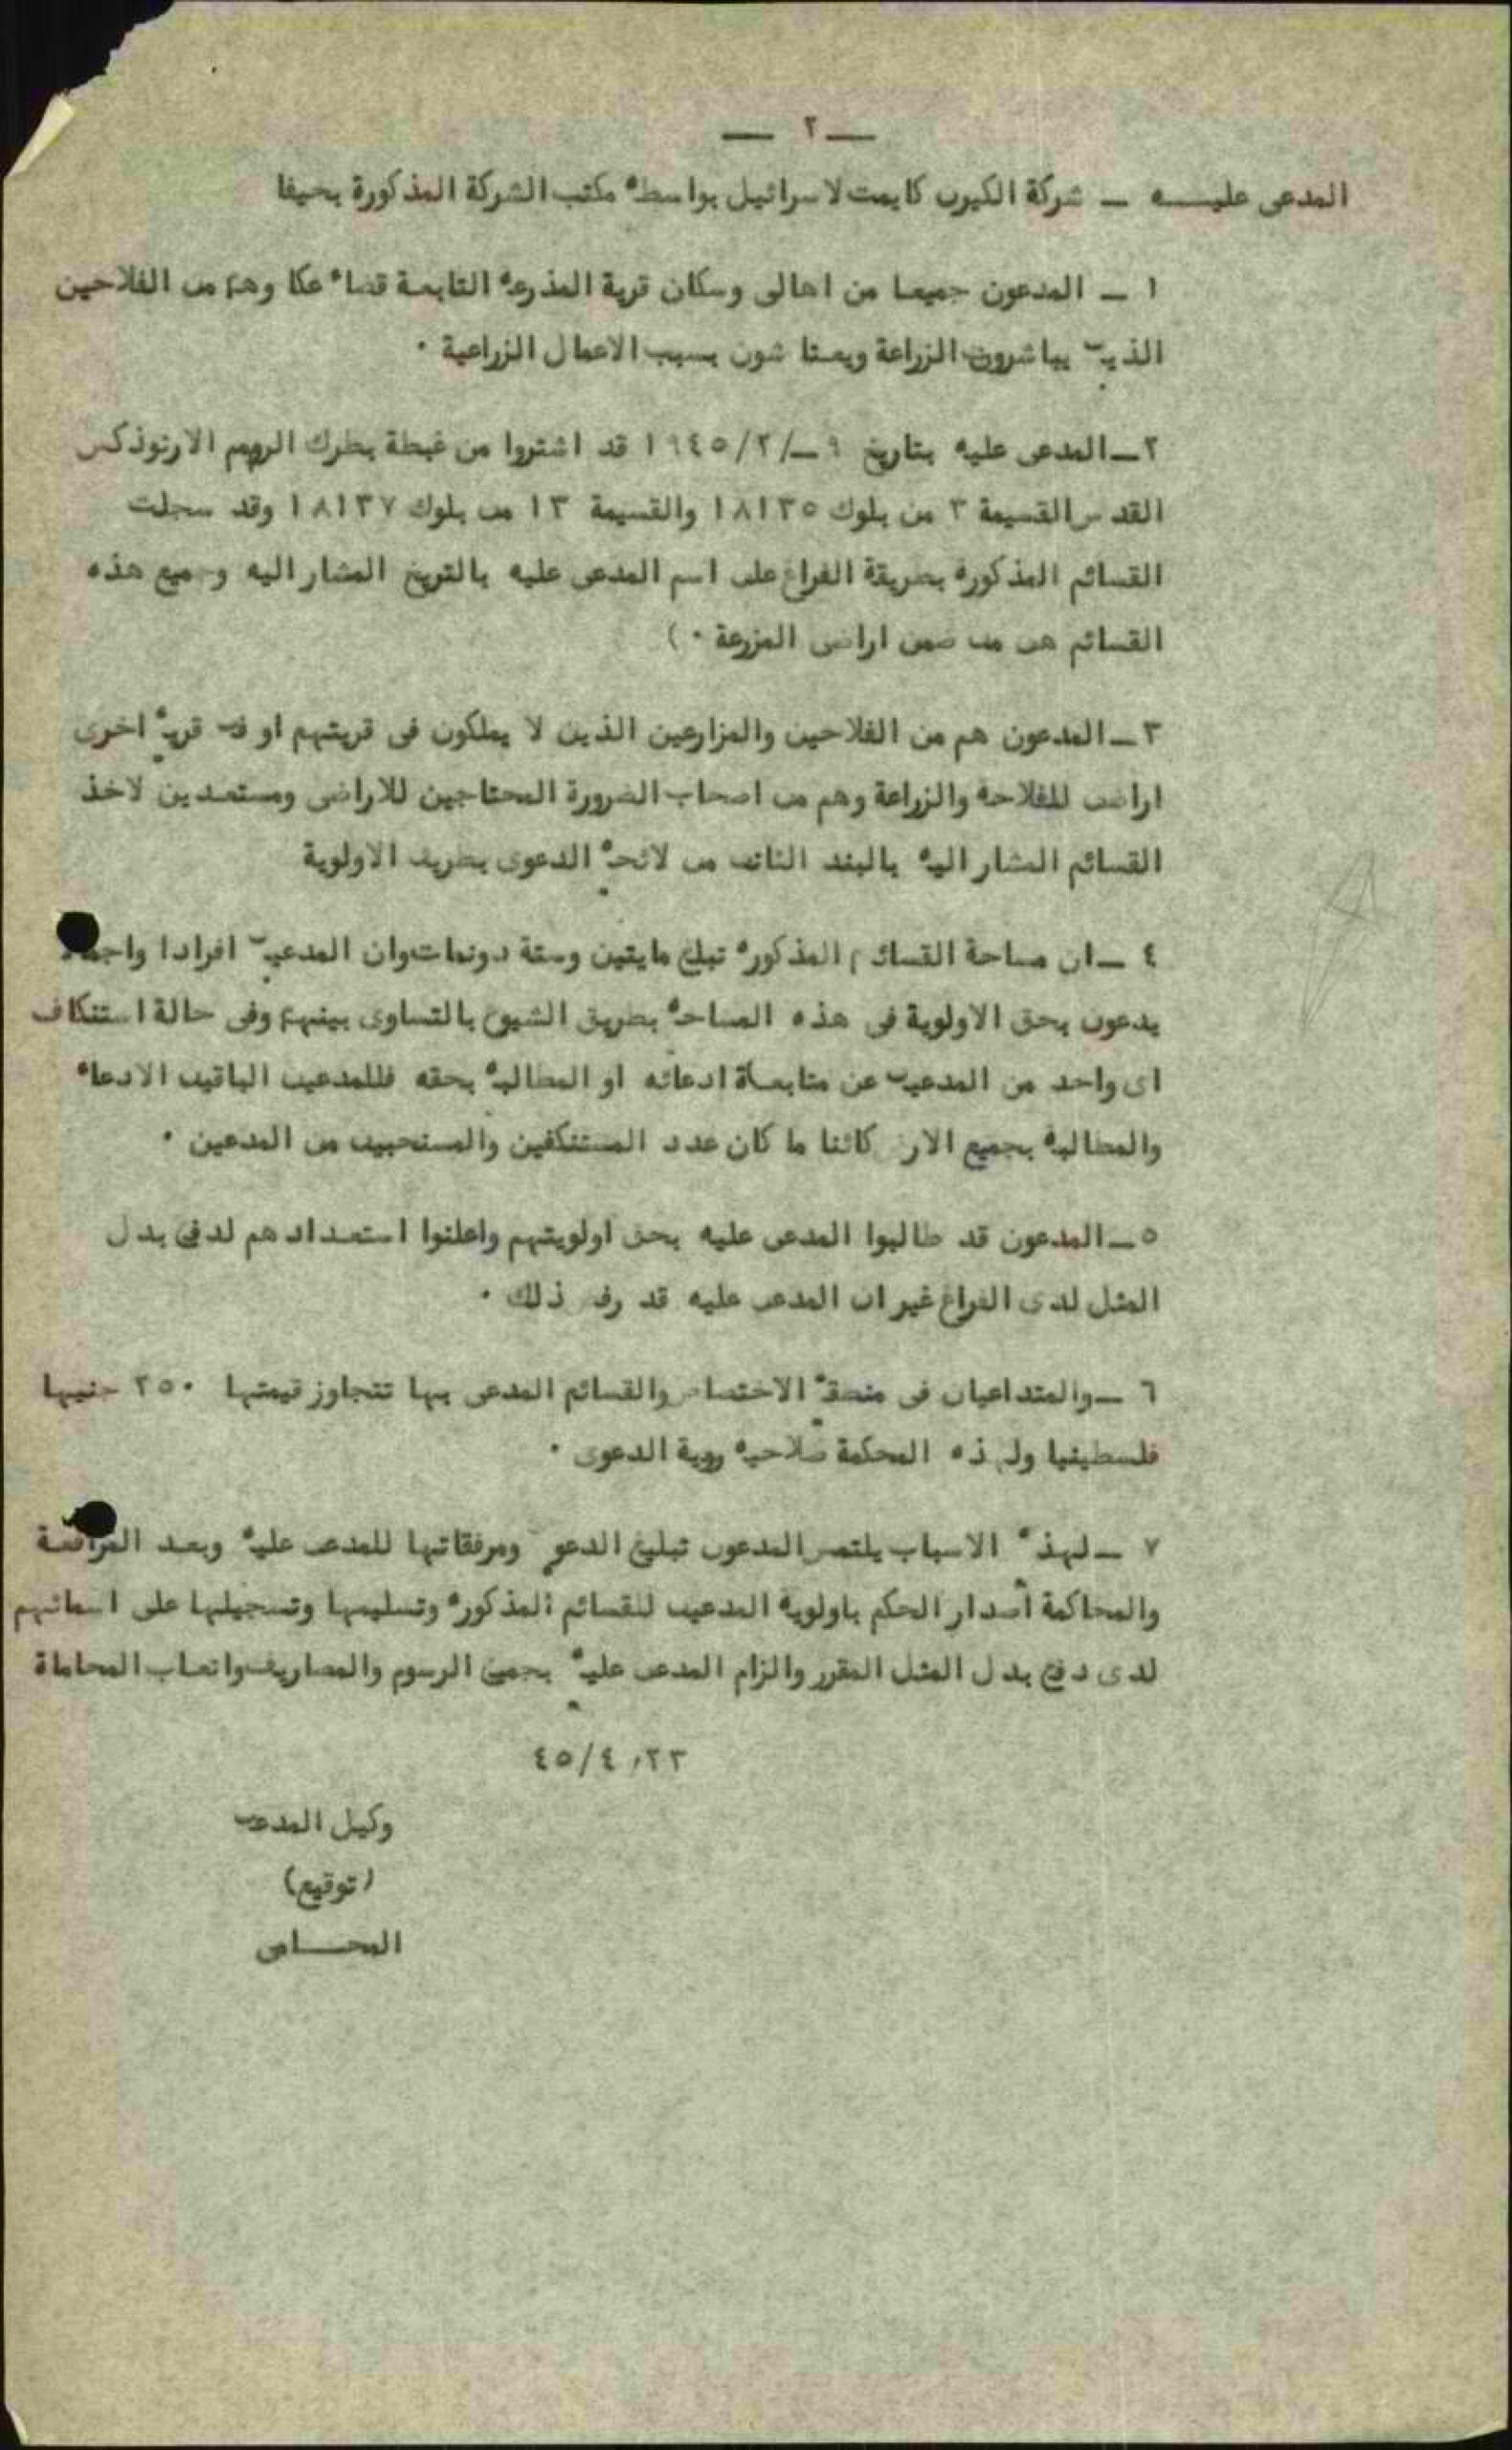 — ٢ —
المدعى عليـــه — شركة الكيرن كايمت لاسرائيل بواسطة مكتب الشركة المذكورة بحيفا
١ — المدعون جميعا من اهالى وسكان قرية المذرعة التابعة قضاء عكا وهم من الفلاحين
الذين يباشرون الزراعة ويعتاشون بسبب الاعمال الزراعية ٠
٢ — المدعى عليه بتاريخ ٩ —/٢/١٩٤٥ قد اشتروا من غبطة بطرك الروم الارثوذكس
القدس القسيمة ٣ من بلوك ١٨١٣٥ والقسيمة ١٣ من بلوك ١٨١٣٧ وقد سجلت
القسائم المذكورة بطريقة الفراغ على اسم المدعى عليه بالتريخ المشار اليه وجميع هذه
القسائم هى من ضمن اراضى المزرعة ٠ )
٣ — المدعون هم من الفلاحين والمزارعين الذين لا يملكون فى قريتهم او فى قرية اخرى
اراضى للفلاحة والزراعة وهم من اصحاب الضرورة المحتاجين للاراضى ومستعدين لاخذ
القسائم المشار اليه بالبند الثانى من لائحة الدعوى بطريق الاولوية
٤ — ان مساحة القسائم المذكورة تبلغ مايتين وستة دونمات وان المدعين افرادا واجمالا
يدعون بحق الاولوية فى هذه المساحة بطريق الشيوع بالتساوى بينهم وفى حالة استنكاف
اى واحد من المدعين عن متابعة ادعائه او المطالبة بحقه فللمدعين الباقين الادعاء
والمطالبة بجميع الار كائنا ما كان عدد المستنكفين والمنسحبين من المدعين ٠
٥ — المدعون قد طالبوا المدعى عليه بحق اولويتهم واعلنوا استعدادهم لدفع بدل
المثل لدى الفراغ غير ان المدعى عليه قد رفض ذلك ٠
٦ — والمتداعيان فى منطقة الاختصاص والقسائم المدعى بها تتجاوز قيمتها ٢٥٠ جنيها
فلسطينيا ولهذه المحكمة صلاحية روية الدعوى ٠
٧ — لهذه الاسباب يلتمس المدعون تبليغ الدعو ومرفقاتها للمدعى عليه وبعد المرافعة
والمحاكمة أصدار الحكم باولوية المدعين للقسائم المذكورة وتسليمها وتسجيلها على اسمائهم
لدى دفع بدل المثل المقرر والزام المدعى عليه بجميع الرسوم والمصاريف واتعاب المحاماة
٤٥/٤/٢٣
وكيل المدعين
(توقيع)
المحـــامى